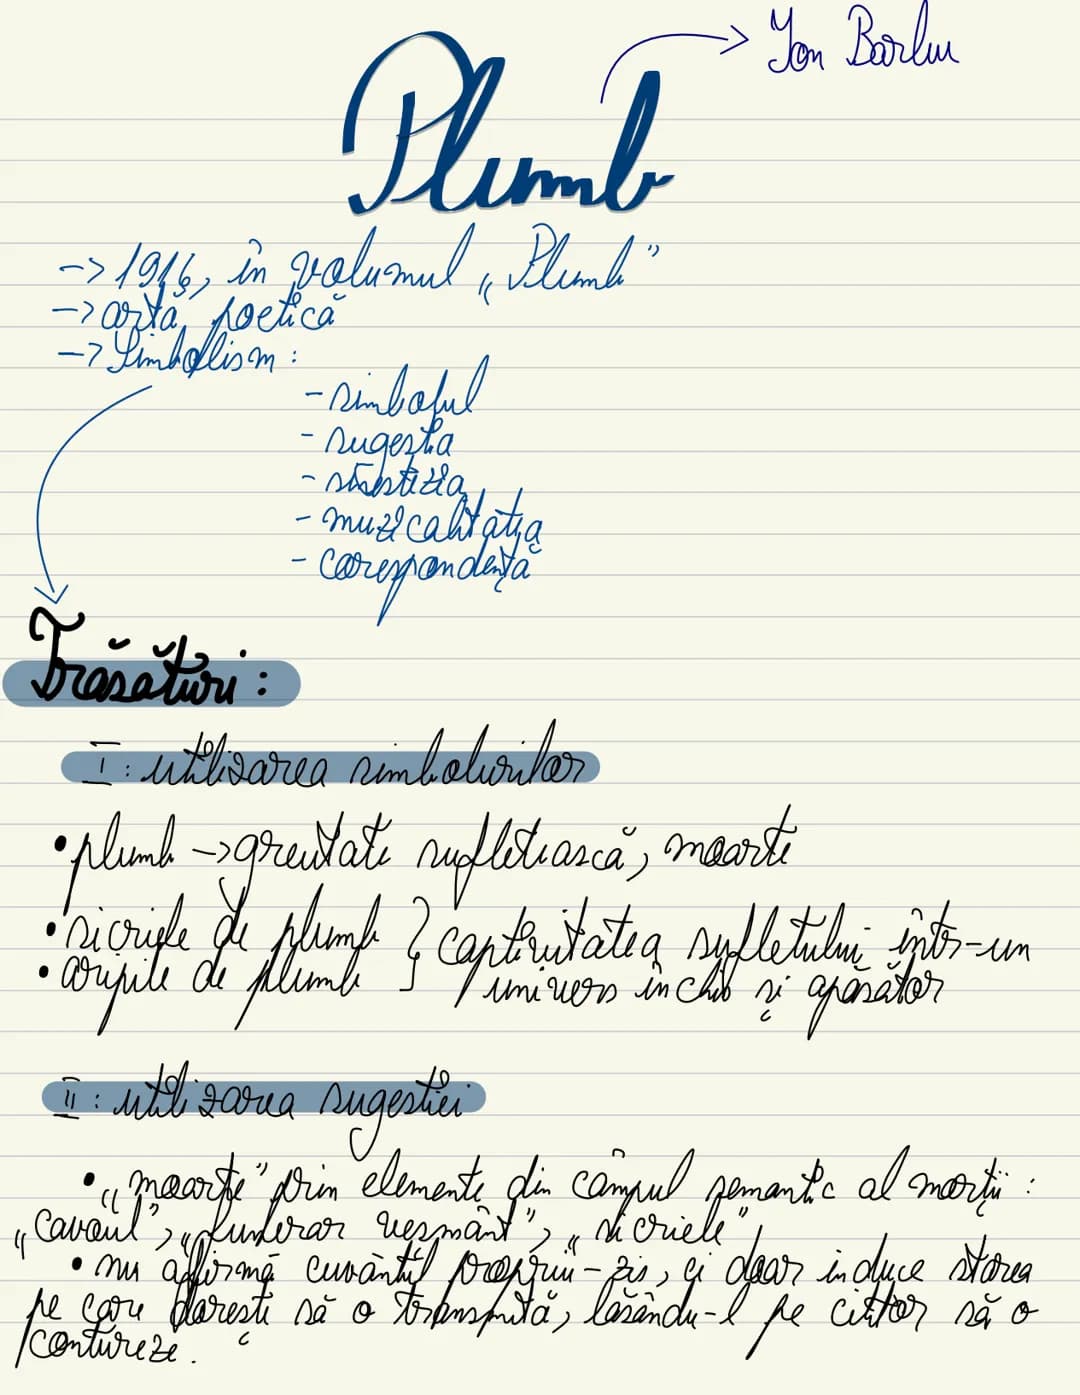 Plumb -> Ion Barbu
-> 1916, în volumul „Plumb”
-> artă poetică
-> Simbolism:
- simbolul
- sugestia
- sinestezia
- muzicalitatea
- corespondență
Trăsături:
I: utilizarea simbolurilor
• plumb -> greutate sufletească, moarte
• sicriele de plumb } captivitatea sufletului într-un
• aripile de plumb } univers închis și apăsător
II: utilizarea sugestiei
• „moarte” prin elemente din câmpul semantic al morții:
„cavoul”, „funerar vesmânt”, „sicriele”
• nu affirmă cuvântul propriu-zis, ci doar induce starea
pe care dorește să o transmită, lăsându-l pe cititor să o
contureze.